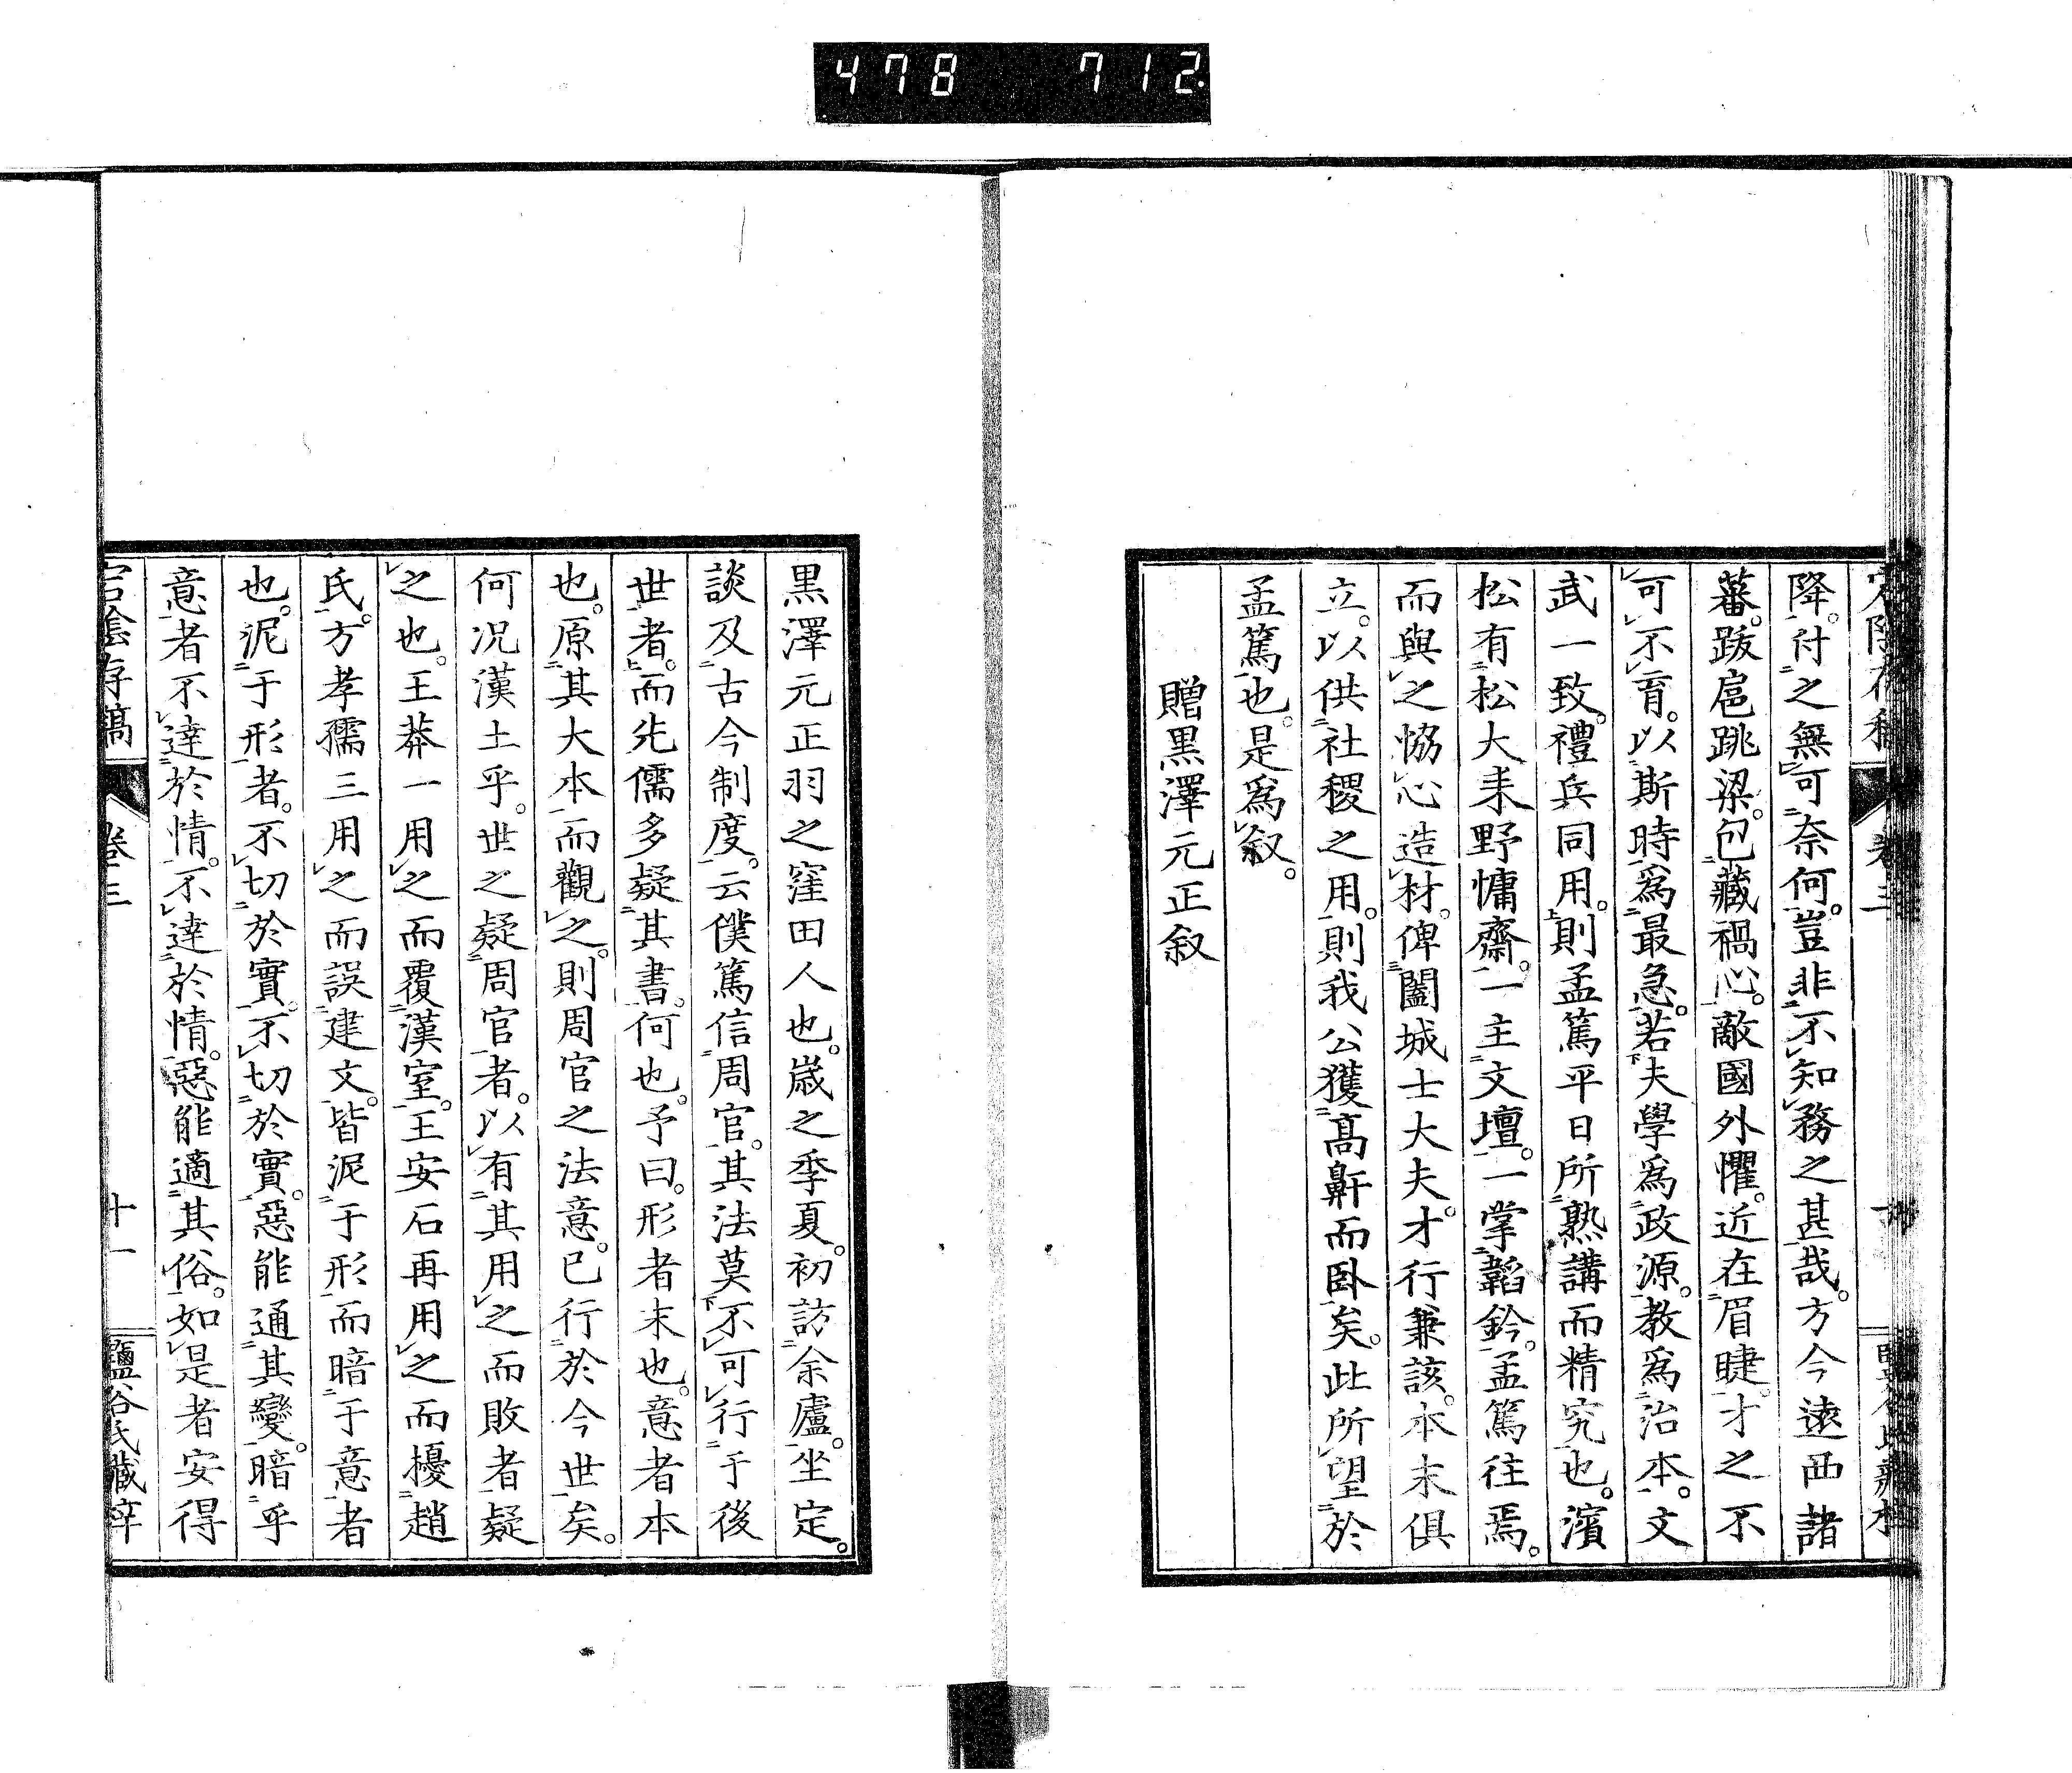 478 712
降。付之無可奈何。豈非不知務之甚哉。方今遠西諸
蕃。跋扈跳梁。包藏禍心。敵國外懼。近在眉睫。才之不
可不育。以斯時爲最急。若夫學爲政源。教爲治本。文
武一致。禮兵同用。則孟篤平日所熟講而精究也。濱
松有松大耒野慵齋。一主文壇。一掌韜鈐。孟篤往焉。
而與之恊心造材。俾闔城士大夫。才行兼該。本末俱
立。以供社稷之用。則我公獲高鼾而卧矣。此所望於
孟篤也。是爲叙。
贈黒澤元正叙
黒澤元正羽之窪田人也。嵗之季夏。初訪余廬。坐定。
談及古今制度。云僕篤信周官。其法莫不可行于後
世者。而先儒多疑其書。何也。予曰。形者末也。意者本
也。原其大本而觀之。則周官之法意。已行於今世矣。
何況漢土乎。世之疑周官者。以有其用之而敗者疑
之也。王莽一用之而覆漢室。王安石再用之而擾趙
氏。方孝孺三用之而誤建文。皆泥于形而暗于意者
也。泥于形者。不切於實。不切於實。惡能通其變。暗乎
意者不達於情。不達於情。惡能適其俗。如是者安得
卷三
十一
鹽谷氏藏梓